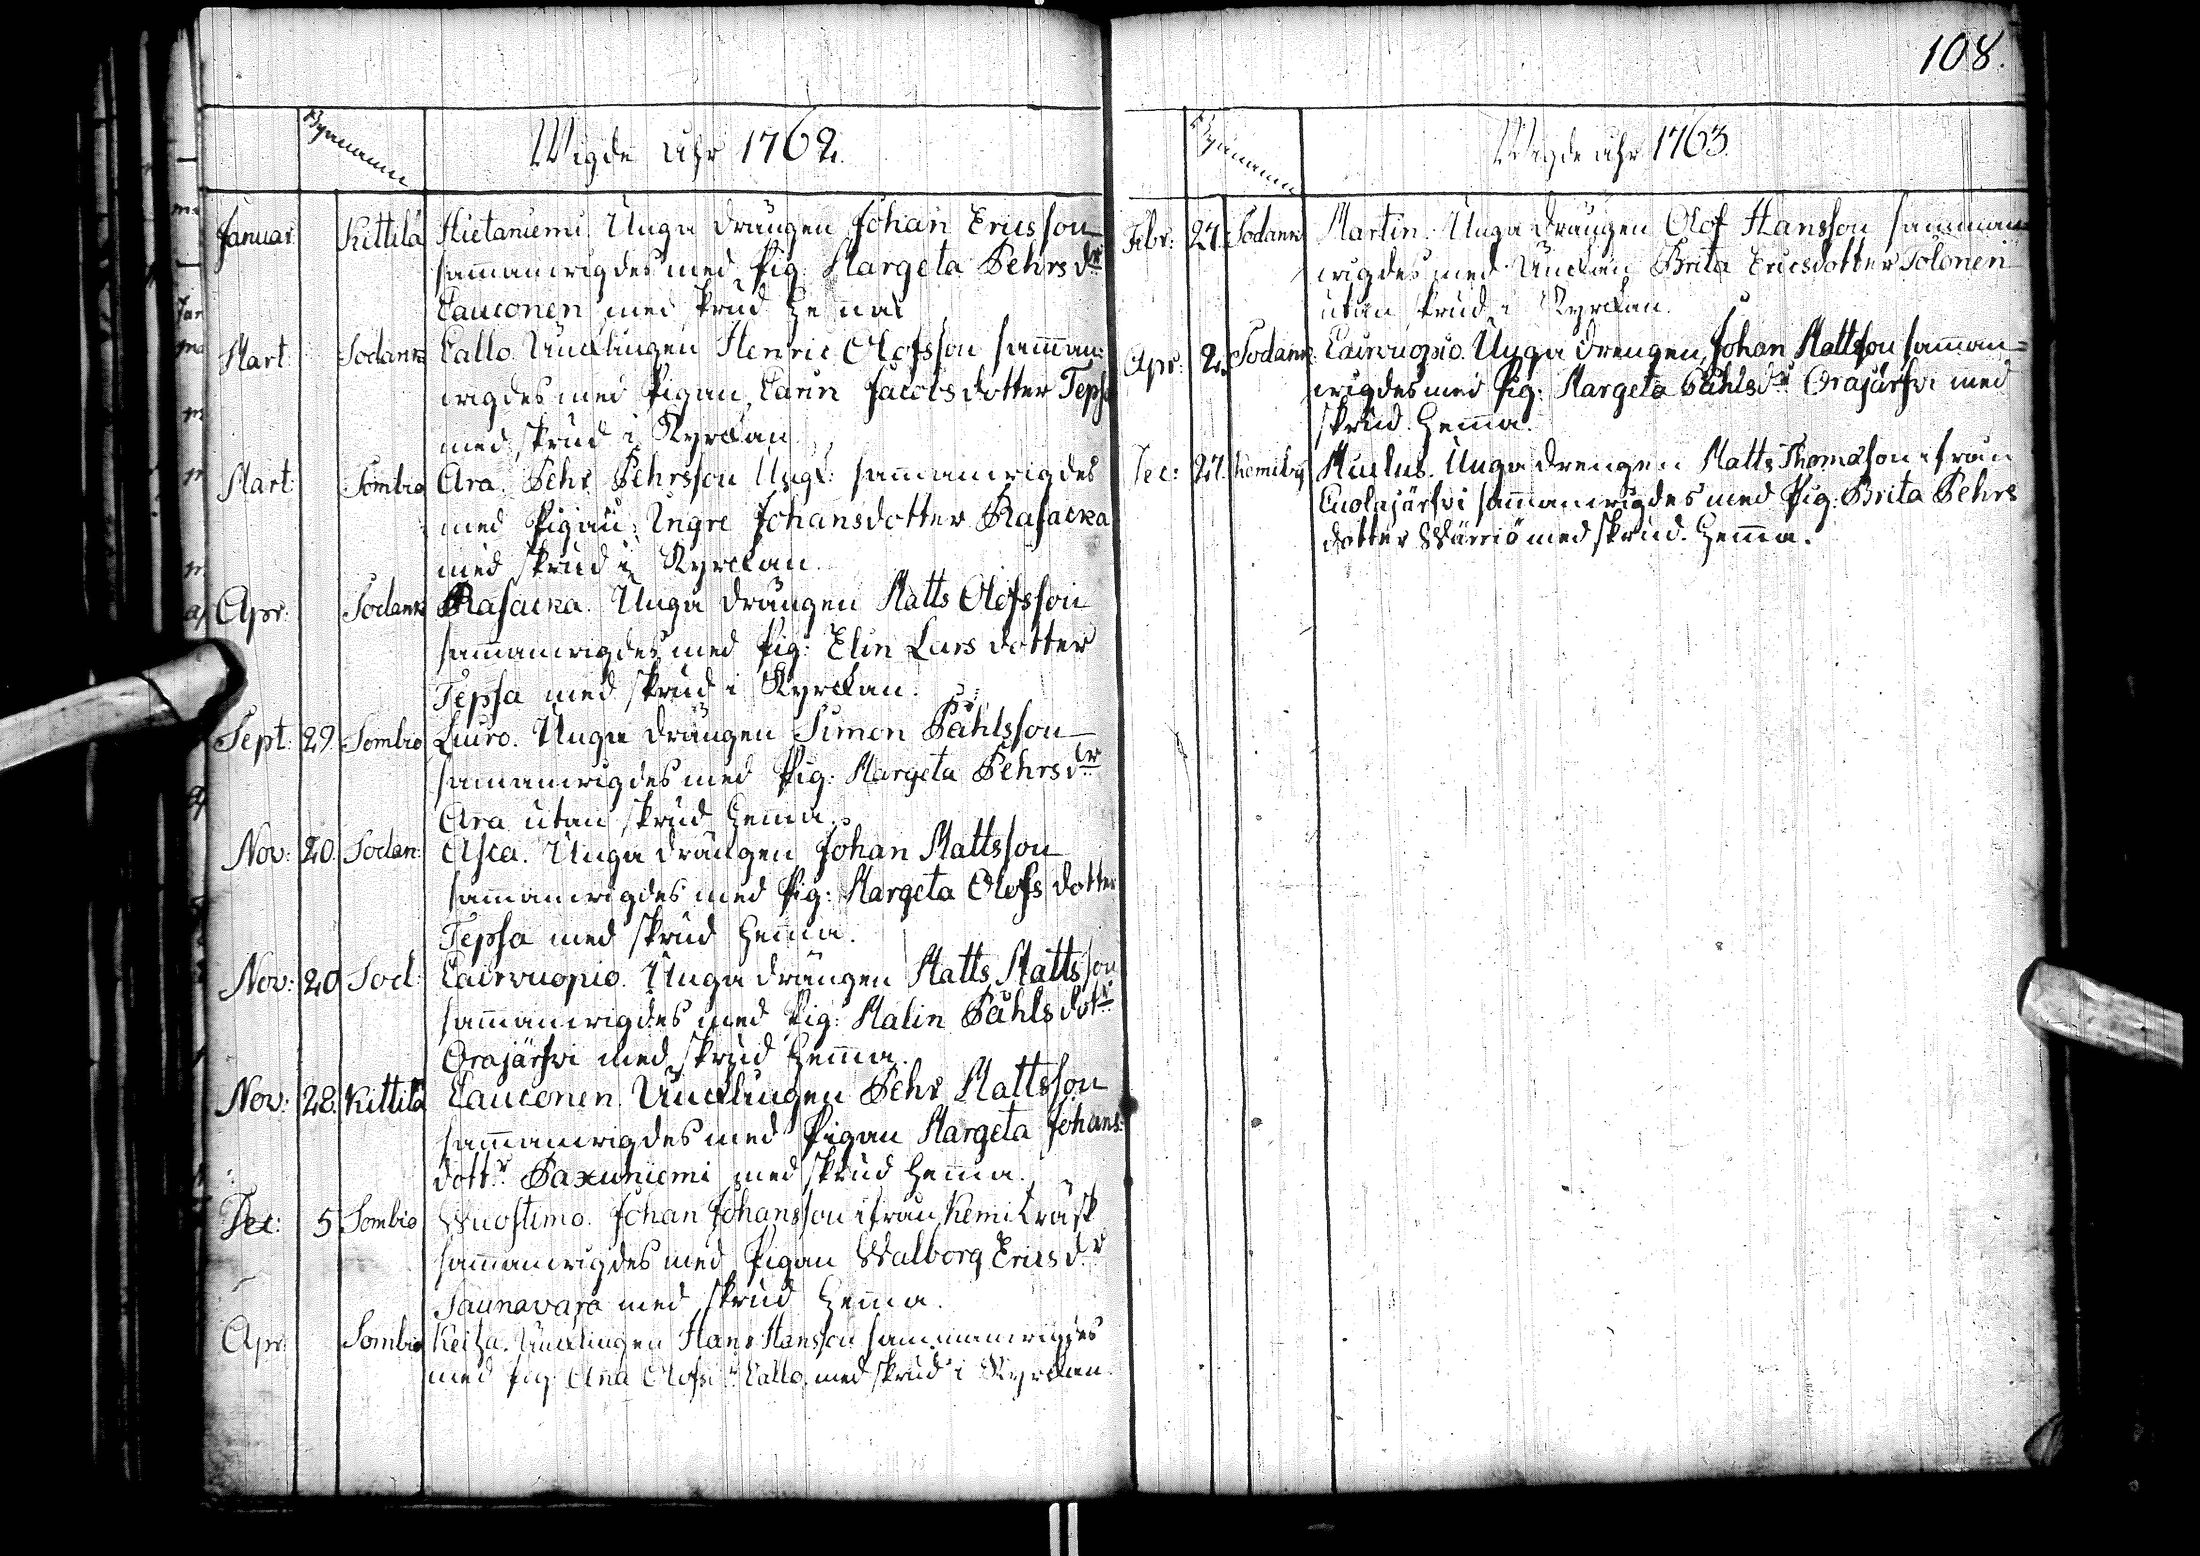 108.
Bynamn
Wigde åhr 1762.
Januar. Kittilä Hietaniemi. Unga drängen Johan Ericsson
sammanwigdes med Pig: Margeta Pehrs dr
Cauconen med skrud hemma
Mart: Sodank Callo. Ynglingen Henric Olofsson samman:
wigdes med Pigan Carin Jacobsdotter Tepsa
med skrud i Kyrckan.
Mart: Sombio Ara. Pehr Pehrsson Yngl: sammanwigdes
med Pigan: Ingre Johansdotter Rasacka
med skrud i Kyrckan.
Apr: Sodank Rasacka. Unga drängen Matts Olofsson
sammanwigdes med Pig: Elin Lars dotter
Tepsa med skrud i Kyrckan.
Sept: 29 Sombio Luiro. Unga drängen Simon Påhlsson
sammanwigdes med Pig: Margeta Pehrs dr
Ara utan skrud hemma.
Nov: 20. Sodan: Asca. Unga drängen Johan Mattsson
sammanwigdes med Pig: Margeta Olofs dotter
Tepsa med skrud hemma.
Nov: 20 Sod: Cairvuopio. Unga drängen Matts Mattsson
sammanwigdes med Pig: Malin Påhls dotr
Orajärfwi med skrud hemma.
Nov: 28. Kittilä Cauconen. Ynglingen Pehr Mattsson
sammanwigdes med Pigan Margeta Johans:
dottr Paxuniemi med skrud hemma.
Dec: 5 Sombio Wuostimo. Johan Johansson ifrån Kemi träsk
sammanwigdes med Pigan Walborg Erics dr
Saunavara med skrud hemma.
Apr: Sombio Keitza. Ynglingen Hans Hansson sammanwigdes
med Pig: Ana Olofs dr Callo. med skrud i Kyrckan.
Bynamn
Wigde åhr 1763.
Febr: 27. Sodank Martin. Unga drängen Olof Hansson samman
wigdes med Änckan Brita Ericsdotter Tolonen
utan skrud i Kyrckan.
Apr: 2. Sodank Cairvuopio. Unga drengen Johan Mattsson samman=
wigdes med Pig: Margeta Påhlsdr Orajärfwi med
skrud hemma.
Dec: 27. Kemiby Unga drengen Matts Thomasson ifrån
Cuolajärfwi sammanwigdes med Pig: Brita Pehrs
dotter Wärriö med skrud. hemma.